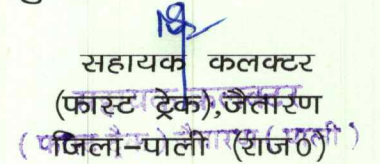 सहायक कलक्टर
(फास्ट ट्रेक),जैतारण
जिला-पाली (राज०)